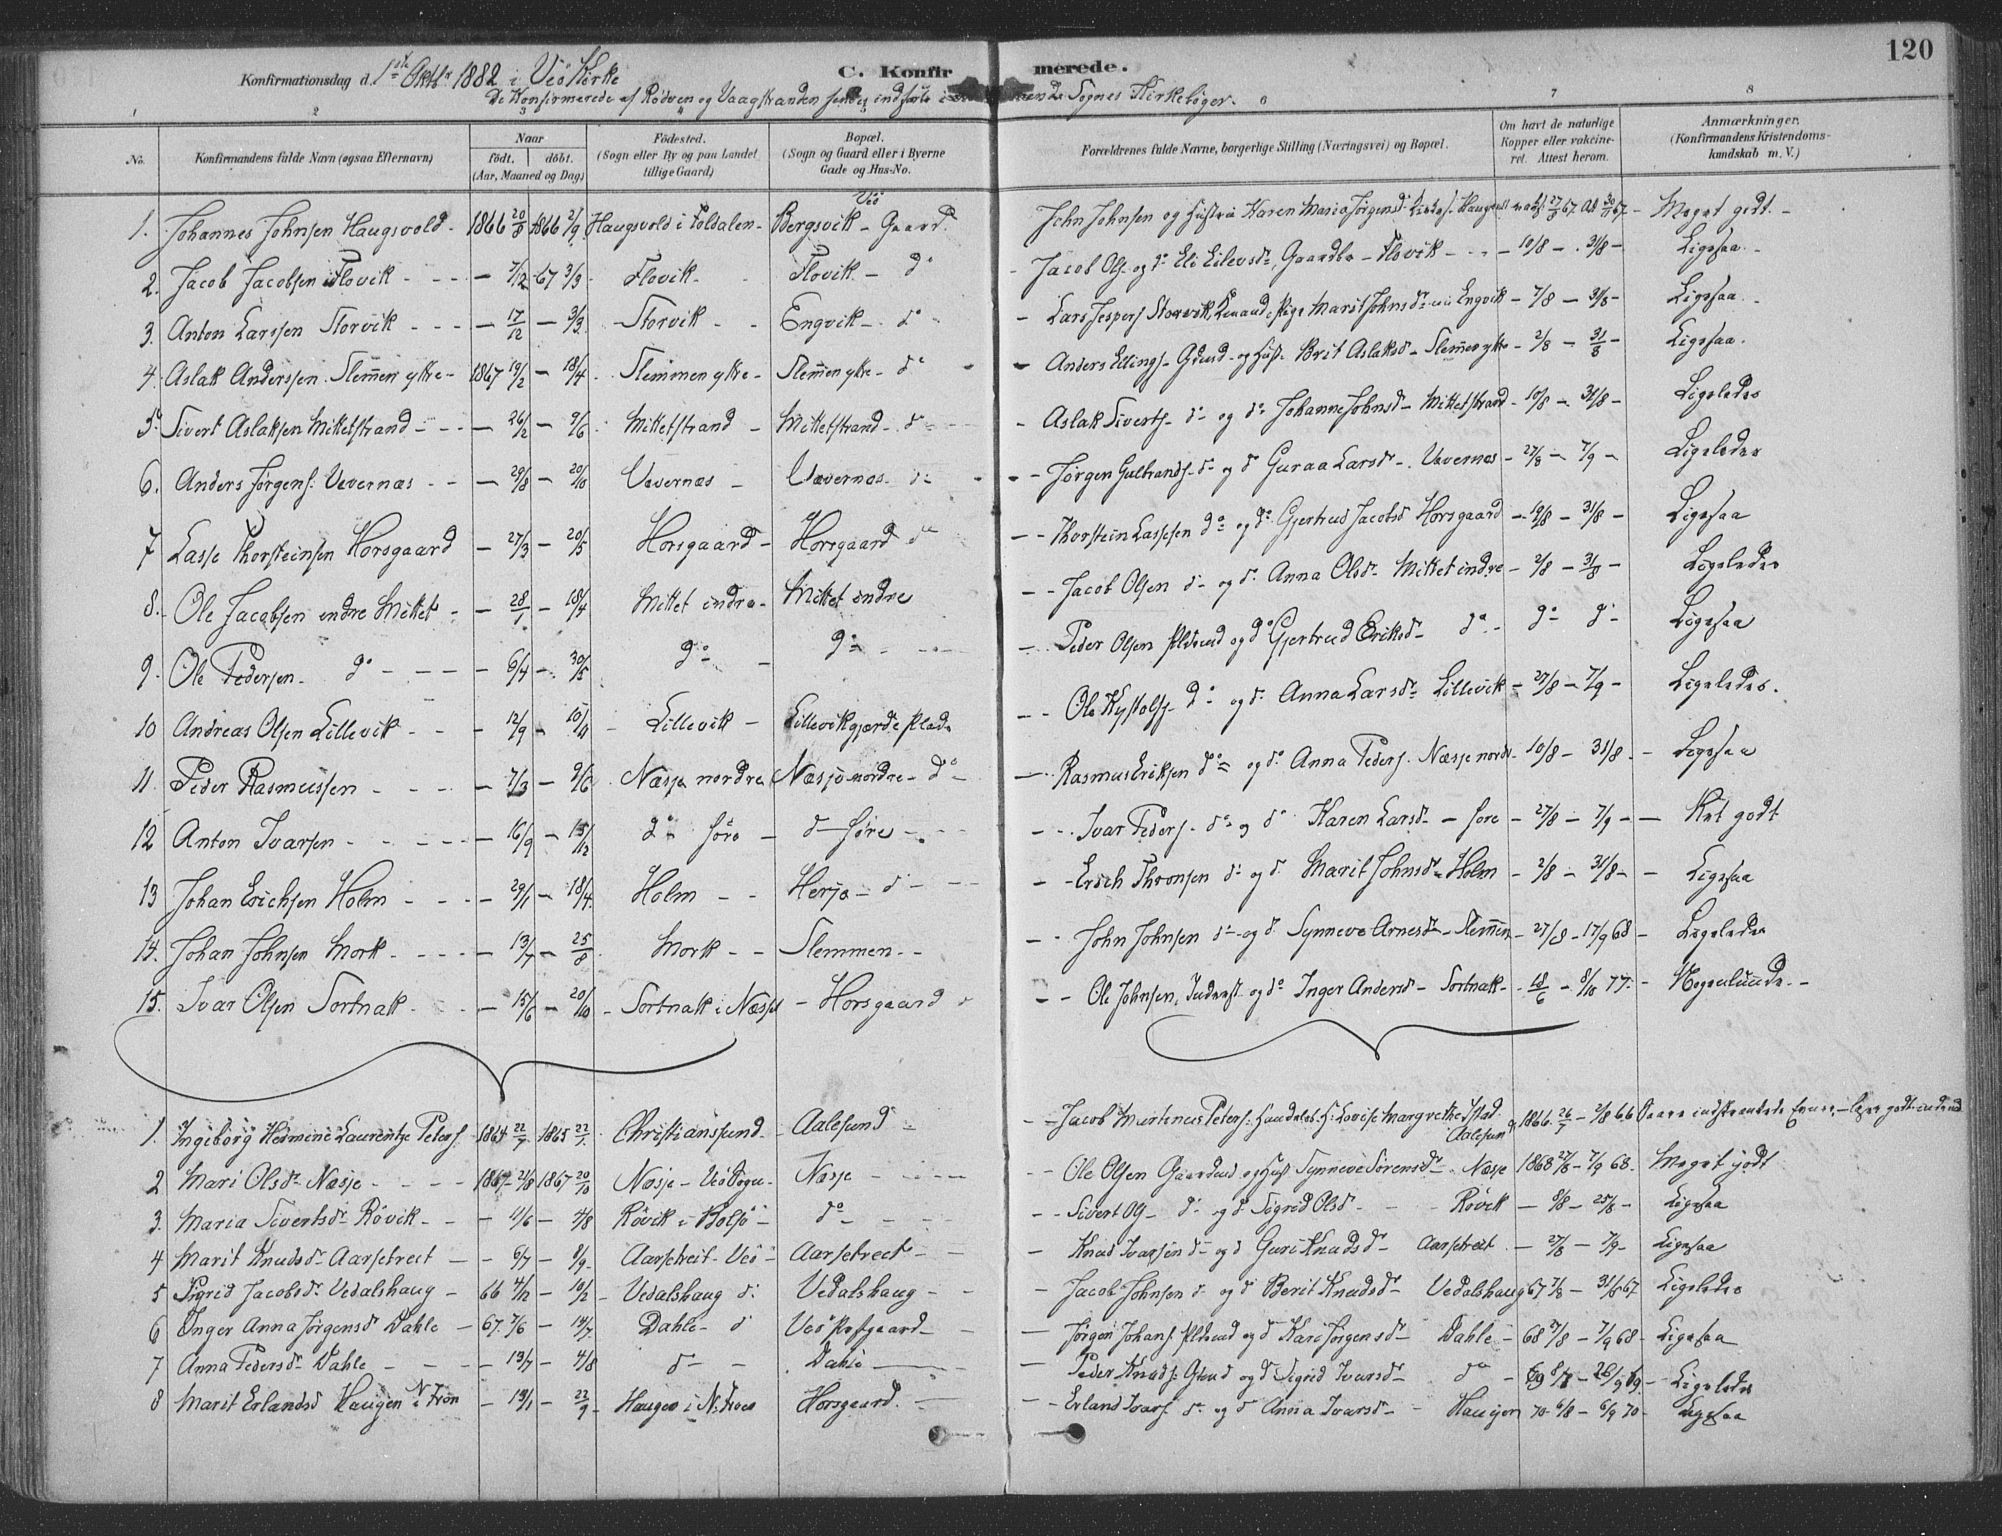 120
C. Konfirmerede.
Konfirmationsdag d. 1ste Oktbr 1882 i Veö Kirke
De Konfirmerede af Rödven og Vaagstranden indförte i Sognes Kirkebøger.
1 2 3 4 5 6 7 8
No. Konfirmandens fulde Navn (ogsaa Efternavn) Naar födt. döbt. (Aar, Maaned og Dag) Födested. (Sogn eller By og paa Landet tillige Gaard) Bopæl. (Sogn og Gaard eller i Byerne Gade og Hus-No. Forældrenes fulde Navne, borgerlige Stilling (Næringsvei) og Bopæl. Om havt de naturlige Kopper eller vakcineret. Attest herom. Anmærkninger. (Konfirmandens Kristendomskundskab m. V.)
1. Johannes Johnsen Haugsvold 1866 20/8 1866 2/9 Haugsvold i Foldalen Bergsvik Veö Gaard John Johnsen og Hustru Karen Maria Jörgensd. Meget godt
2. Jacob Jacobsen Flovik 7/12 67 3/3 Flovik Flovik do Jacob Ols. og do Eli Eilevsdr. Gaardbr. Flovik 10/8 31/8 Ligesaa
3. Anton Larssen Storvik 17/12 3/3 Storvik Engvik do Lars Jespers. Storvik, Pige Marit Johnsdr Engvik 7/8 31/8 Ligesaa
4. Aslak Anderssen Slemmen ytre 1867 19/2 18/4 Slemmen ytre Slemmen ytre do Anders Ellings. Gdmd og Hust. Brit Aslaksd. Slemmen ytre 2/8 31/8 Ligesaa
5. Sivert Aslaksen Mittetstrand 26/2 9/6 Mittetstrand Mittetstrand do Aslak Siverts. do og do Johanne Johnsd. Mittetstrand 10/8 31/8 Ligeledes
6. Anders Jörgens. Vævernæs 29/8 20/10 Vævernæs Vævernæs do Jörgen Gulbrands. do og do Guraa Larsdr. Vævernæs 27/8 7/9 Ligeledes
7 Lasse Thorsteinsen Horsgaard 27/3 20/5 Horsgaard Horsgaard do Thorstein Lassesen do og do Gjertrud Jacobsd Horsgaard 10/8 31/8 Ligesaa
8. Ole Jacobsen indre Mittet 28/1 18/4 Mittet indre Mittet indre Jacob Olsen do og do Anna Olsdr Mittet indre 2/8 31/8 Ligeledes
9. Ole Pedersen do 6/4 30/5 do do Peder Olsen Pladsmd og do Gjertrud Eriksdr do do do Ligesaa
10 Andreas Olsen Lillevik 12/9 Lillevik Lillevikgjærde Plads Ole do og do Anna Larsdr Lillevik 27/8 7/9 Ligeledes.
11. Peder Rasmussen 7/3 9/6 Næsje nordre Næsje nordre do Rasmus Eriksen do og do Anna Peders. Næsje nordr 10/8 31/8 Ligesaa
12 Anton Ivarsen 16/9 15/12 do söre do söre Ivar Peders. do og do Karen Larsdr söre 27/8 7/9 Ret godt
13 Johan Erichsen Holm 29/1 18/4 Holm Herje do Erich Thronsen do og do Marit Johnsdr Holm 2/8 31/8 Ligesaa
14. Johan Johnsen Mork 13/7 25/8 Mork Slemmen John Johnsen do og do Synneve Arnesdr Slemmen 27/8 17/9 68 Ligeledes
15. Ivar Olsen Sortnak 15/6 20/10 Sortnak i Næsje Horsgaard Ole Johnsen, Inderst og do Inger Andersdr Sortnak 18/6 8/10 77. Nogenlunde
1. Ingeborg Hermine Laurentze Peters. 1864 22/7 1865 22/1 Christianssund Aalesund Jacob Martinus Peters. Lovise Margrethe Aalesund 1866 26/7 2/8 66
2 Mari Olsdr Næsje 1867 21/8 1867 20/10 Næsje Veö Sogn Næsje Ole Olsen Gaardmd og Hust. Synneve Sörensdr Næsje 1868 27/8 7/9 68 Meget godt
3. Maria Sivertsdr Rövik 11/6 4/8 Rövik i Bolsö do Sivert Ols. do og do Sigrid Olsd. Rövik 8/8 25/8 Ligesaa
4 Marit Knudsdr Aarsetreet 6/7 8/9 Aarsetreit Veö Aarsetreet Knud Ivarsen do og do Guri Knudsdr Aarsetreit 27/8 7/9 Ligesaa
5 Sigrid Jacobsdr Vedalshaug 66 4/12 10/2 Vedalshaug do Vedalshaug Jacob Johnsen do og do Berit Knudsdr Vedalshaug 67 7/8 31/8 67 Ligeledes
6 Inger Anna Jörgensdr Dahle 67. 7/6 14/7 Dahle do Veö Prestgaard Jörgen Johans. Pladsmd og do Kari Jörgensdr Dahle 68 27/8 7/9 68 Ligesaa
7 Anna Pedersdr Dahle 13/7 4/8 do Dahle Peder Knuds. Gdmd og do Sigrid Ivarsdr do 69 Ligeledes
8 Marit Erlandsd Haugen i N. Fron 13/1 22/9 Haugen i N. Fron Horsgaard Erland Ivars. do og do Anna Ivarsdr Haugen 70 6/8 6/9 70 Ligesaa